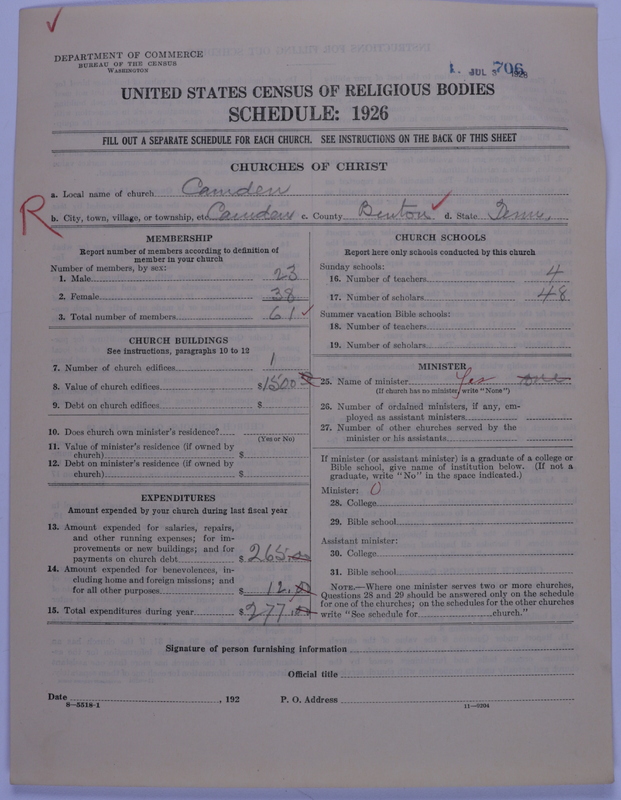 DEPARTMENT OF COMMERCE
BUREAU OF THE CENSUS
WASHINGTON
1. 706
JUL 1926
UNITED STATES CENSUS OF RELIGIOUS BODIES
SCHEDULE: 1926
FILL OUT A SEPARATE SCHEDULE FOR EACH CHURCH. SEE INSTRUCTIONS ON THE BACK OF THIS SHEET
CHURCHES OF CHRIST
a. Local name of church Camden
R
b. City, town, village, or township, etc. Camden c. County Benton d. State Tenn.
MEMBERSHIP
Report number of members according to definition of
member in your church
Number of members, by sex:
1. Male 23
2. Female 38
3. Total number of members 61
CHURCH BUILDINGS
See instructions, paragraphs 10 to 12
7. Number of church edifices 1
8. Value of church edifices $1500
9. Debt on church edifices $
10. Does church own minister's residence?
(Yes or No)
11. Value of minister's residence (if owned by
church) $
12. Debt on minister's residence (if owned by
church) $
EXPENDITURES
Amount expended by your church during last fiscal year
13. Amount expended for salaries, repairs,
and other running expenses; for im-
provements or new buildings; and for
payments on church debt $ 265.00
14. Amount expended for benevolences, in-
cluding home and foreign missions; and
for all other purposes $ 12.00
15. Total expenditures during year $ 277.00
CHURCH SCHOOLS
Report here only schools conducted by this church
Sunday schools:
16. Number of teachers 4
17. Number of scholars 48
Summer vacation Bible schools:
18. Number of teachers
19. Number of scholars
MINISTER
25. Name of minister Yes one
(If church has no minister, write "None")
26. Number of ordained ministers, if any, em-
ployed as assistant ministers
27. Number of other churches served by the
minister or his assistants
If minister (or assistant minister) is a graduate of a college or
Bible school, give name of institution below. (If not a
graduate, write "No" in the space indicated.)
Minister: 0
28. College
29. Bible school
Assistant minister:
30. College
31. Bible school
NOTE.—Where one minister serves two or more churches,
Questions 28 and 29 should be answered only on the schedule
for one of the churches; on the schedules for the other churches
write "See schedule for church."
Signature of person furnishing information
Official title
Date , 192 P. O. Address
8—5518-1
11—9204